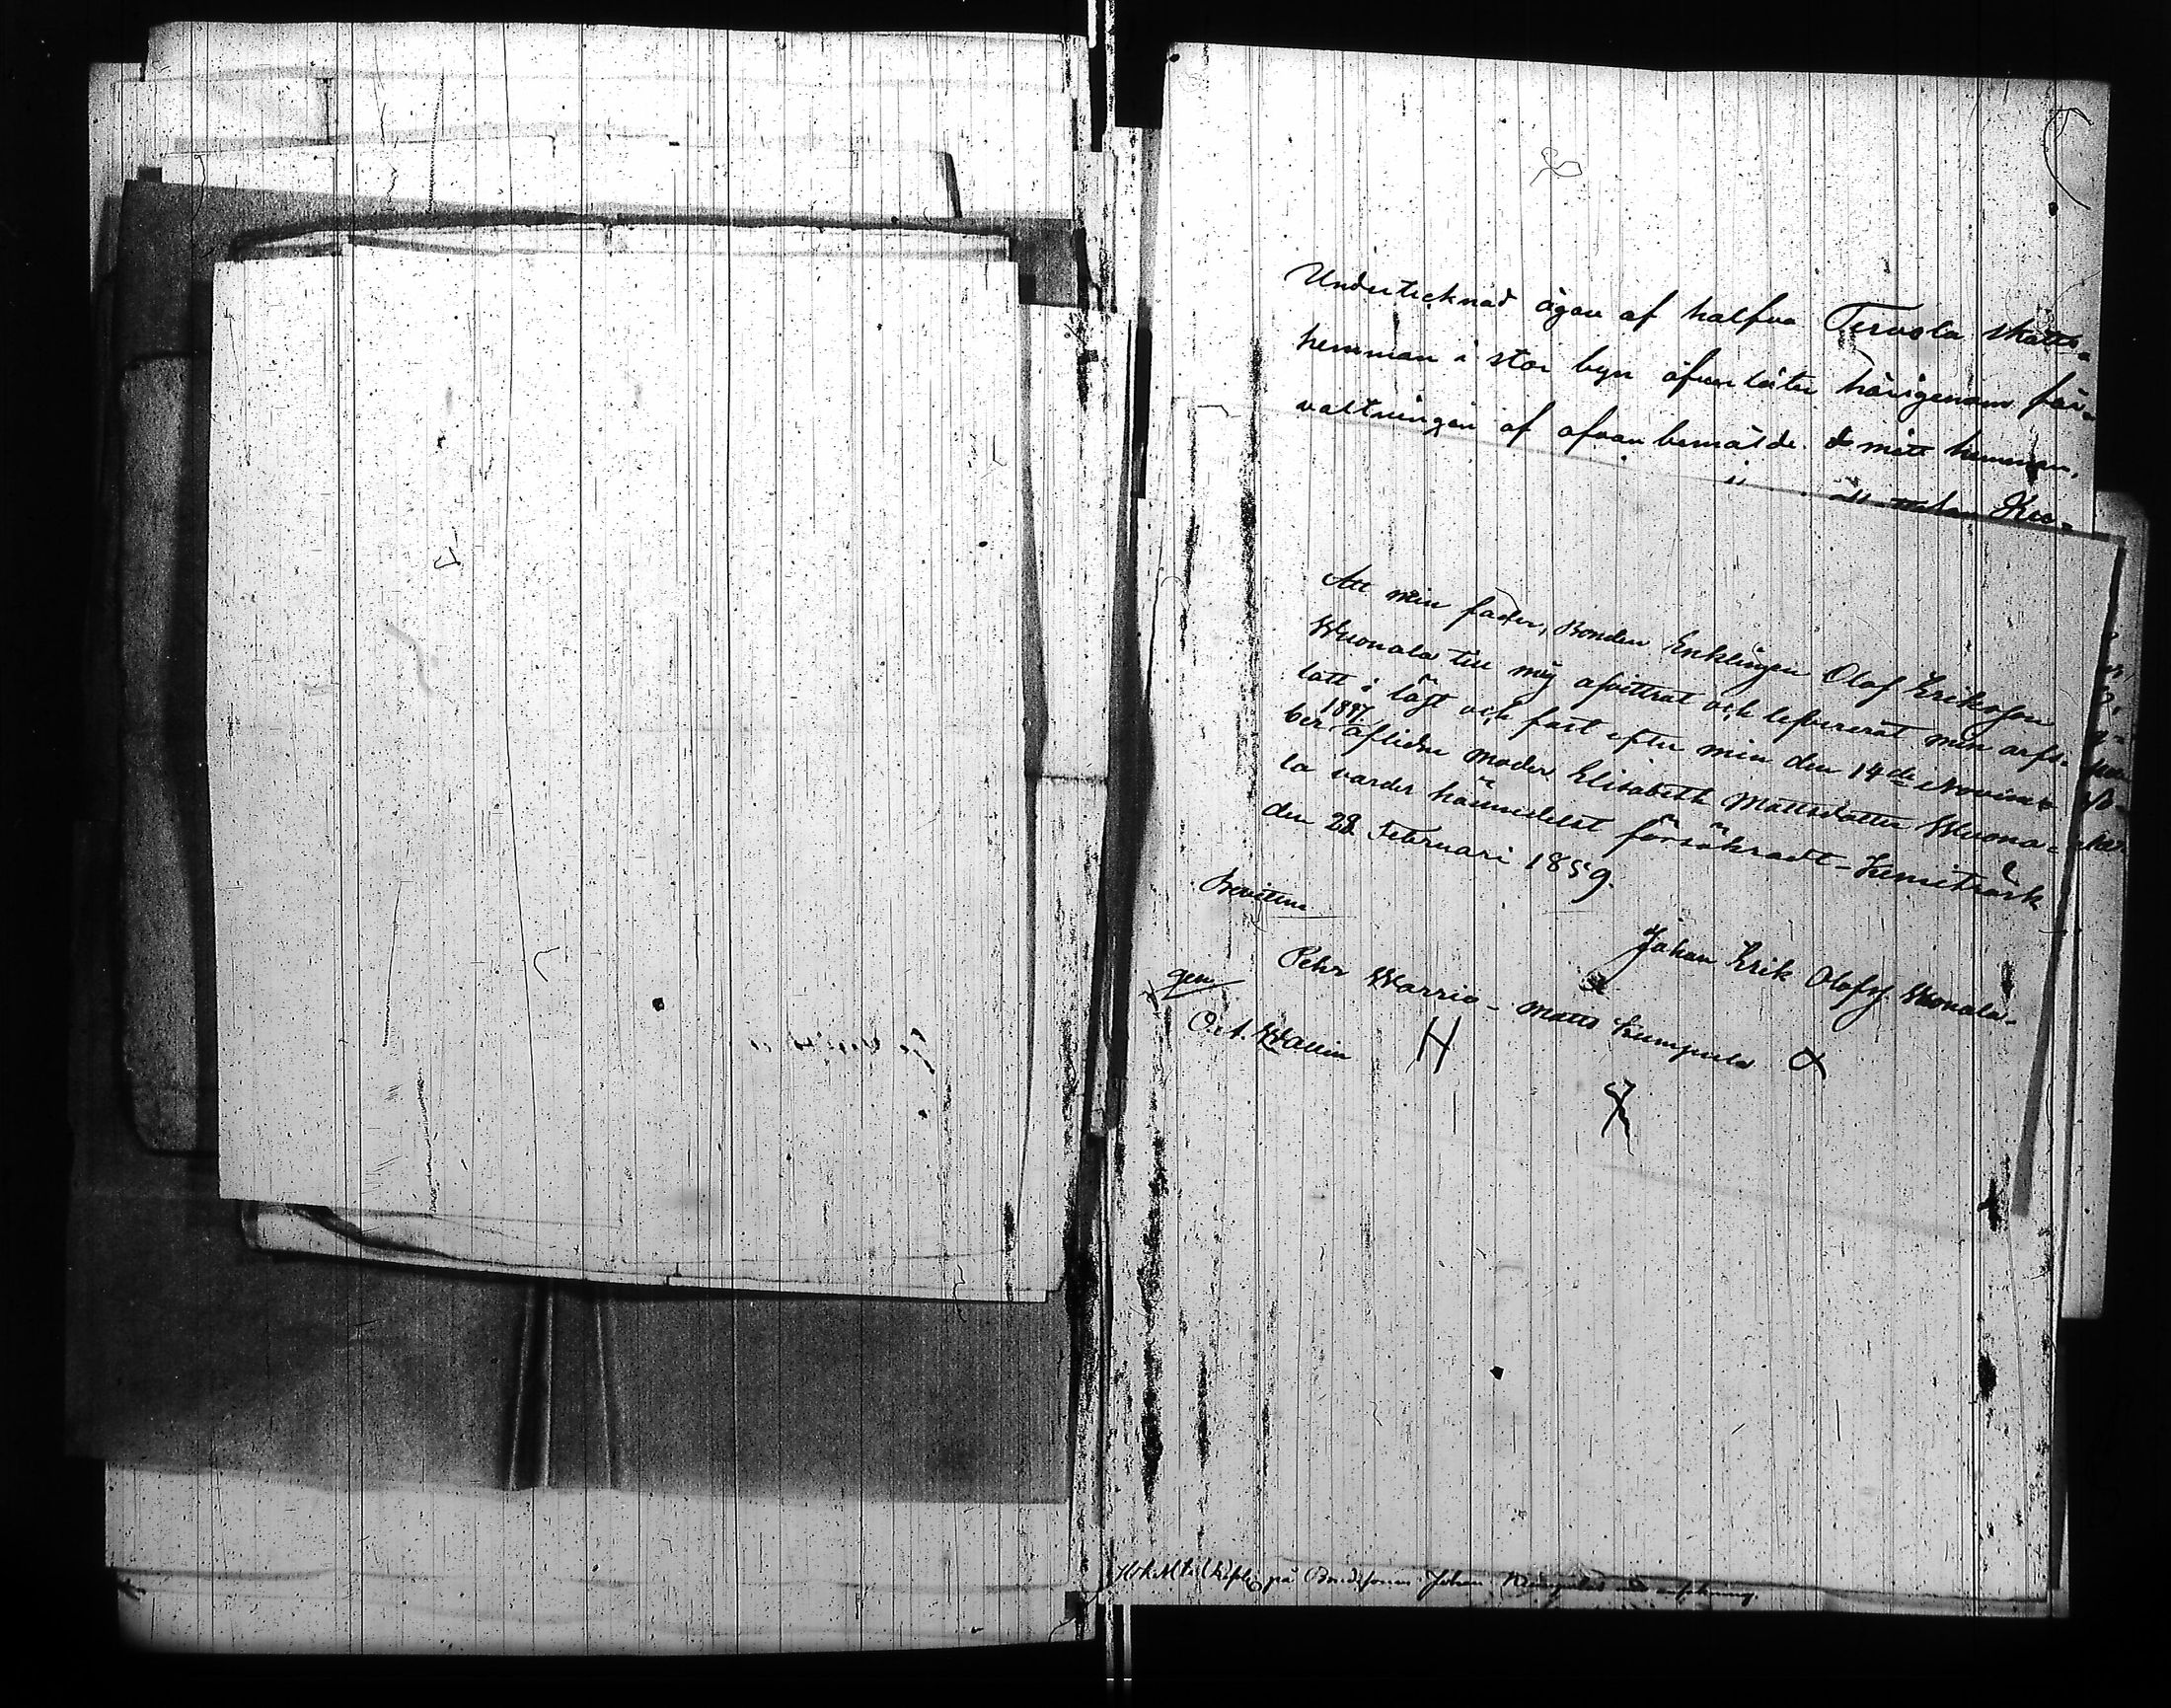 Undertecknad ägare af halfva Tervola skatte-
hemman i stor byn öfverlåter härigenom för-
valtningen af ofvanbemälde mitt hemman,
Att min fader, Bonden Enklingen Olof Eriksson
Wuonala till mig afvittrat och lefvererat min arfs-
lott i löst och fast efter min den 14de Novem-
1857
ber aflidne moder Elisabeth Mattsdotter Wuona-
la varder hämedelst försäkradt - Kemiträsk
den 28 Februari 1859.
Johan Erik Olofss. Wuonala.
Bevittna
Pehr Warrio - Matts Kumpula
gen
O. A. Wallin
på Bondesonen Johan